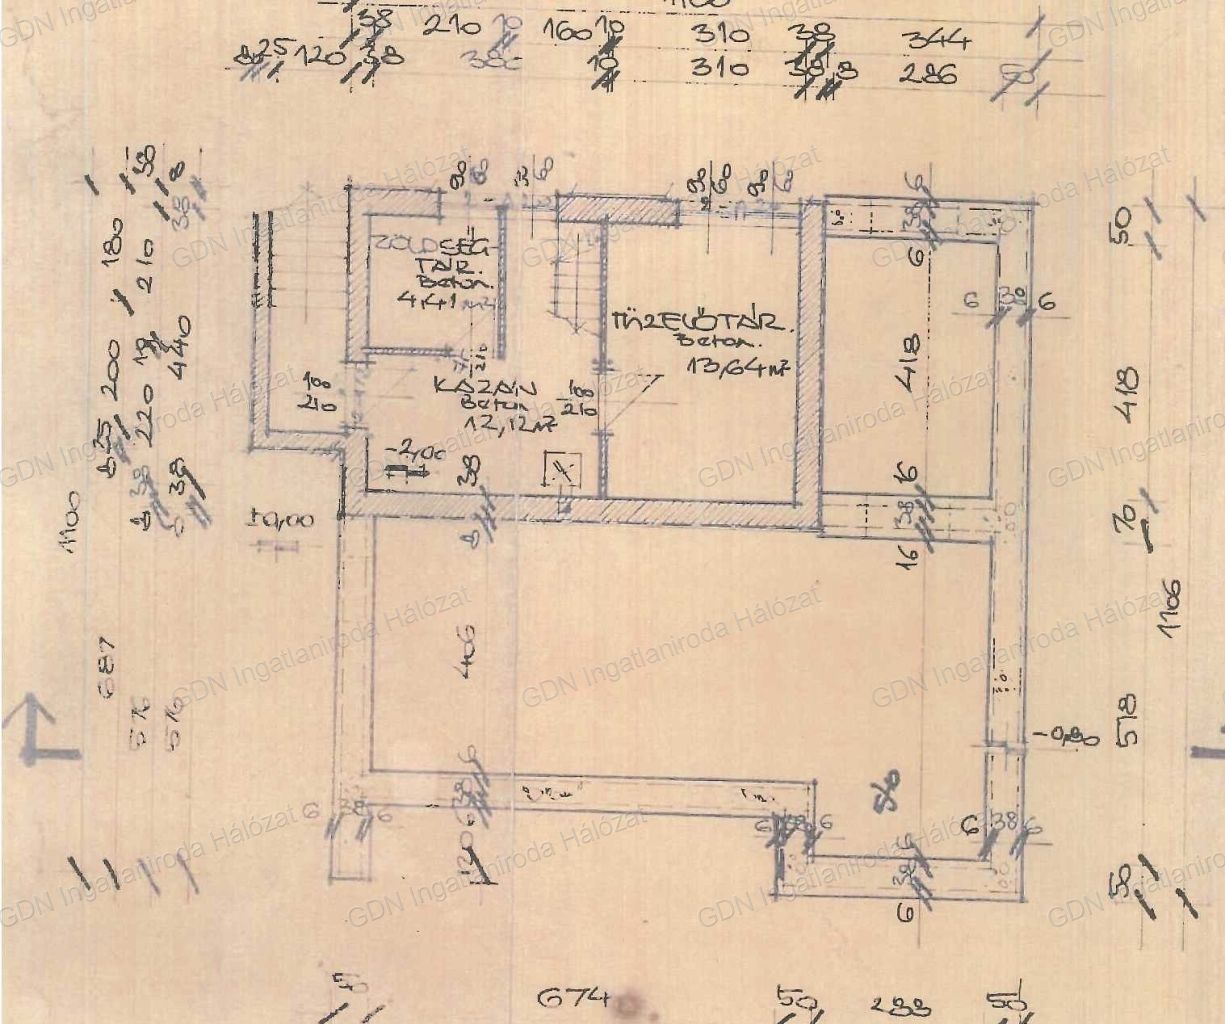 38 210 10 160 10 310 38 344
25 120 38 380 10 310 38 8 286 50
90
60
90
60
90
60
6
38
6
50
ZÖLDSÉG
TÁR.
Beton.
4,41 m²
TÜZELŐTÁR.
Beton.
13,64 m²
KAZÁN
Beton
12,12 m²
100
210
-2,00
38
±0,00
6 38 6
418
418
16
38
16
70
1106
1100
180
200
25
38
210
10
220
38
8
38
440
38
687
576
576
406
6
38
6
120
518
540
6 8 6
6 38 6
6 38 6
6
38
6
50
674 50 288 50
GDN Ingatlaniroda Hálózat